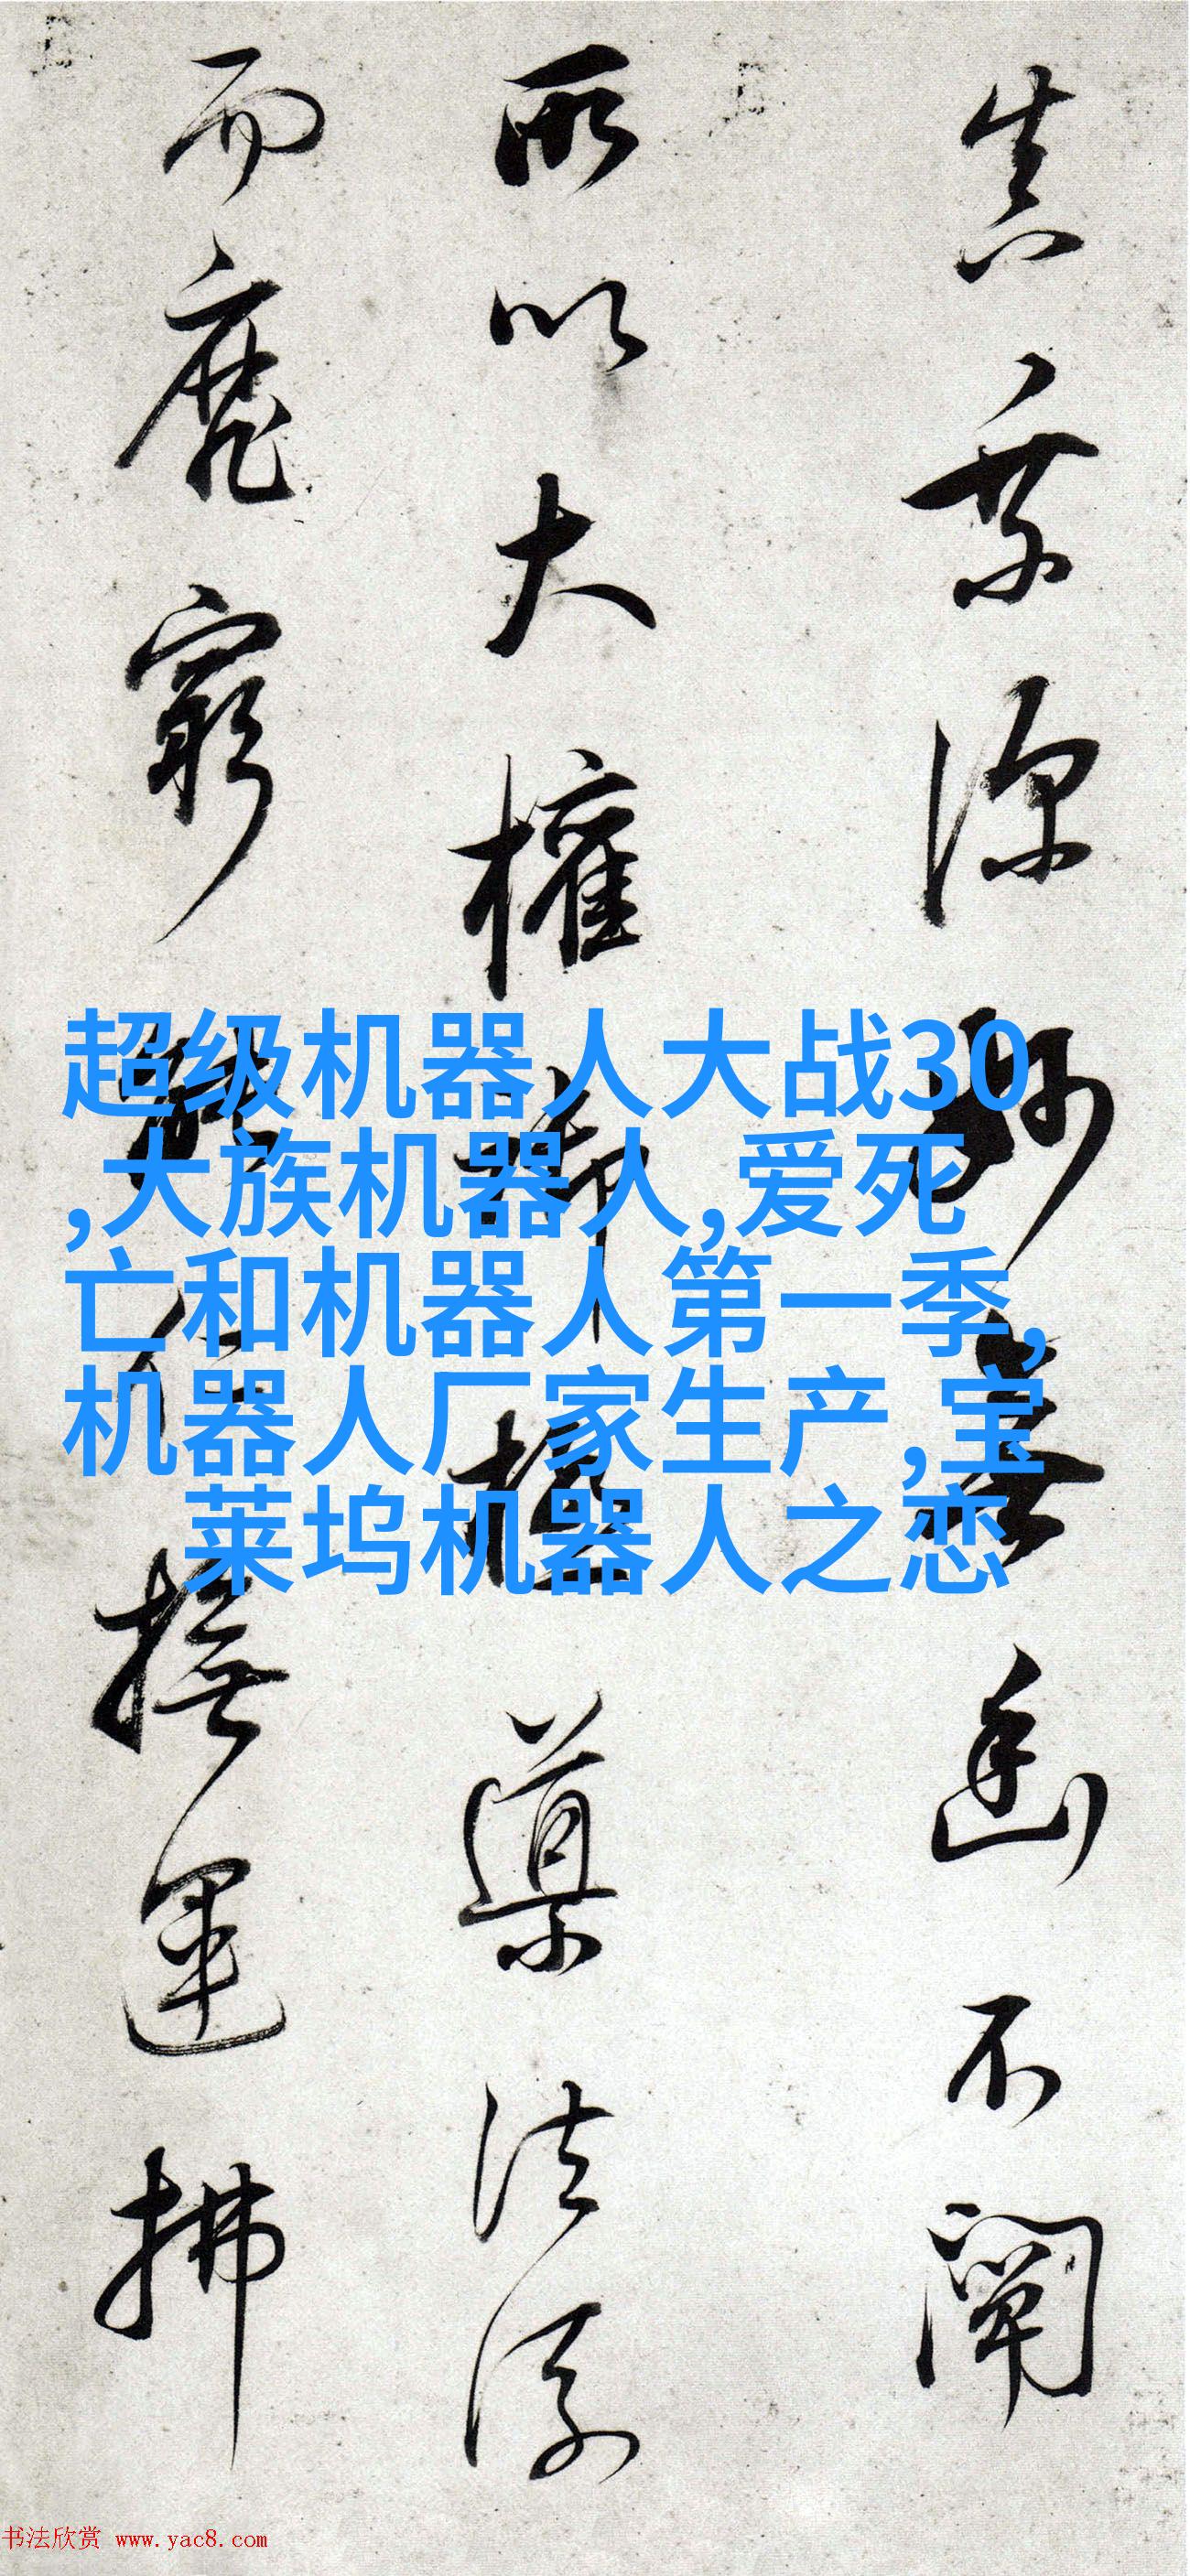 真深妙無幽不闡
所以大權御極導法流
而靡窮能仁撫運拂
超级机器人大战30
,大族机器人,爱死
亡和机器人第一季,
机器人厂家生产,宝
莱坞机器人之恋
书法欣赏 www.yac8.com